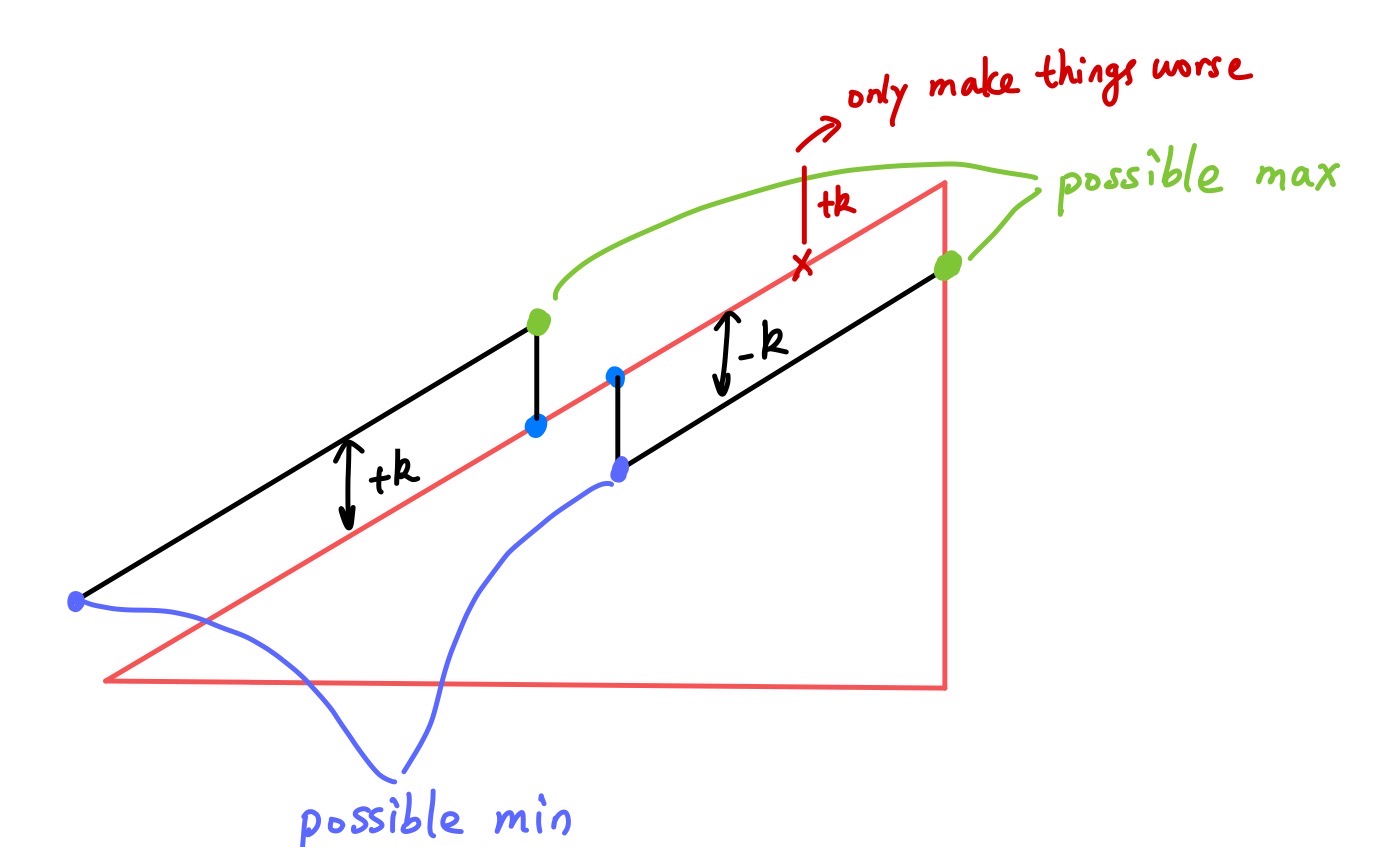 only make things worse
possible max
+k
-k
+k
possible min